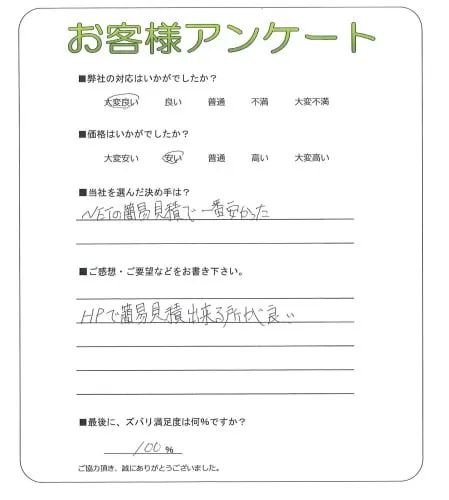 お客様アンケート
■弊社の対応はいかがでしたか?
大変良い 良い 普通 不満 大変不満
■価格はいかがでしたか?
大変安い 安い 普通 高い 大変高い
■当社を選んだ決め手は?
NETの簡易見積で一番安かった
■ご感想・ご要望などをお書き下さい。
HPで簡易見積出来る所が良い
■最後に、ズバリ満足度は何%ですか?
100 %
ご協力頂き、誠にありがとうございました。